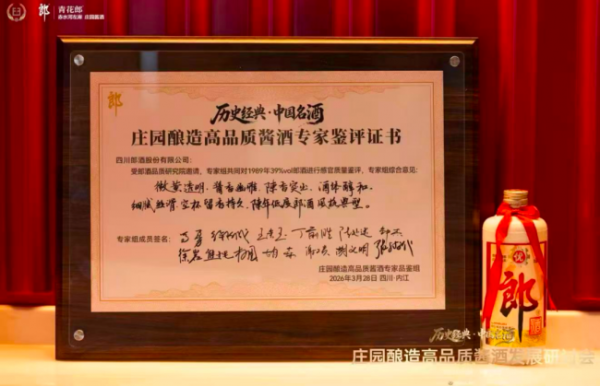 郎
青花郎
赤水河左岸 庄园酱酒
郎
历史经典·中国名酒
庄园酿造高品质酱酒专家鉴评证书
四川郎酒股份有限公司:
受郎酒品质研究院邀请,专家组共同对1989年39%vol郎酒进行感官质量鉴评,专家组综合意见:
微黄透明、酱香幽雅、陈香突出、酒体醇和、
细腻丝滑、空杯留香持久、陈年低度郎酒风格典型。
专家组成员签名:
庄园酿造高品质酱酒专家品鉴组
2026年3月28日 四川·内江
郎
历史经典·中国名酒
庄园酿造高品质酱酒发展研讨会